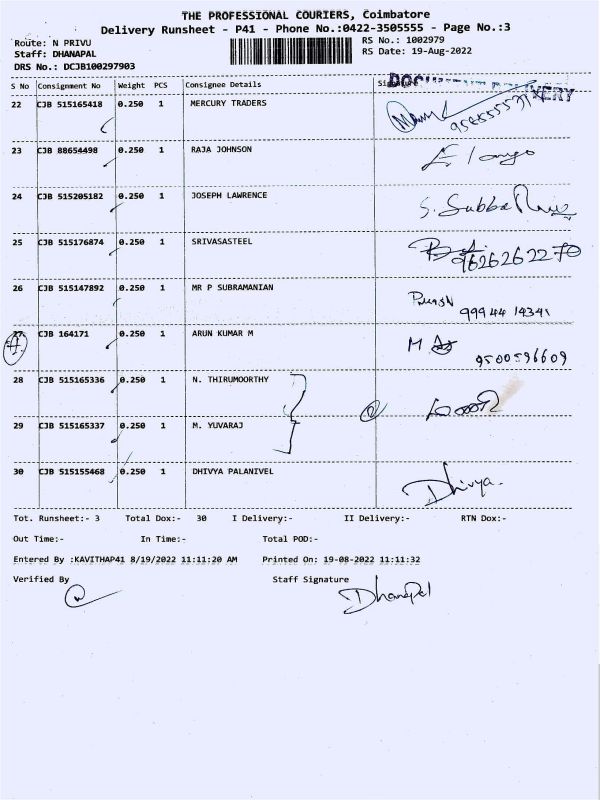 THE PROFESSIONAL COURIERS, Coimbatore
Delivery Runsheet - P41 - Phone No.:0422-3505555 - Page No.:3
Route: N PRIVU RS No.: 1002979
Staff: DHANAPAL RS Date: 19-Aug-2022
DRS No.: DCJB100297903
S No Consignment No Weight PCS Consignee Details
DELIVERY
22 CJB 515165418 0.250 1 MERCURY TRADERS
23 CJB 88654498 0.250 1 RAJA JOHNSON Elango
24 CJB 515205182 0.250 1 JOSEPH LAWRENCE S. Subba
25 CJB 515176874 0.250 1 SRIVASASTEEL
9626262270
26 CJB 515147892 0.250 1 MR P SUBRAMANIAN
99944 14341
27 CJB 164171 0.250 1 ARUN KUMAR M M
9500596609
28 CJB 515165336 0.250 1 N. THIRUMOORTHY
29 CJB 515165337 0.250 1 M. YUVARAJ
30 CJB 515155468 0.250 1 DHIVYA PALANIVEL Dhivya.
Tot. Runsheet:- 3 Total Dox:- 30 I Delivery:- II Delivery:- RTN Dox:-
Out Time:- In Time:- Total POD:-
Entered By :KAVITHAP41 8/19/2022 11:11:20 AM Printed On: 19-08-2022 11:11:32
Verified By Staff Signature
Dhanapal